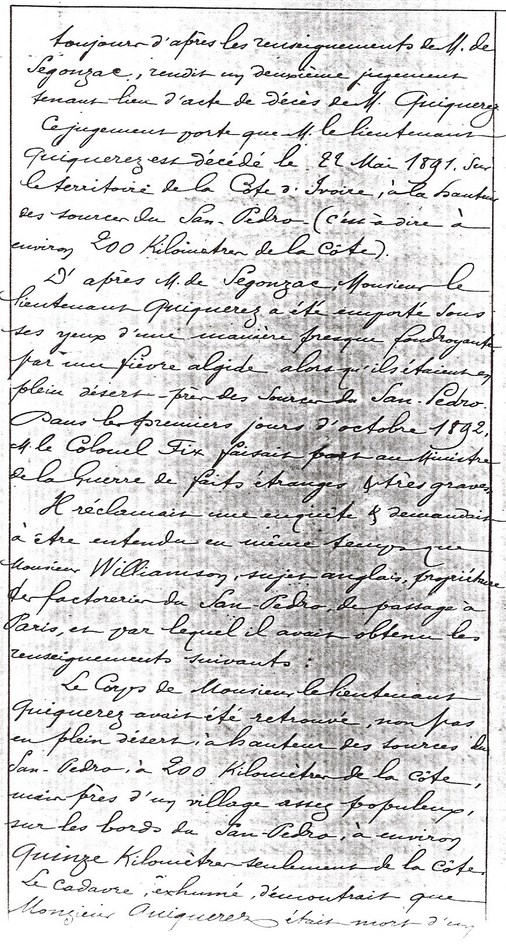 toujours d'après les renseignements de M. de
Ségonzac, rendit un deuxième jugement
tenant lieu d'acte de décès de M. Quiquerez
Ce jugement porte que M. le lieutenant
Quiquerez est décédé le 22 Mai 1891. Sur
le territoire de la Côte d'Ivoire, à la hauteur
des sources du San-Pédro (c'est à dire à
environ 200 Kilomètres de la côte).
D'après M. de Segonzac, Monsieur le
lieutenant Quiquerez a été emporté sous
ses yeux d'une manière presque foudroyante
par une fièvre algide alors qu'ils étaient en
plein désert - près des Sources du San-Pedro.
Dans les premiers jours d'octobre 1892,
M. le Colonel Fix faisait part au Ministre
de la Guerre de faits étranges & très graves,
Il réclamait une enquête & demandait
à être entendu en même temps que
Monsieur Williamson, sujet anglais, propriétaire
des factoreries du San-Pedro, de passage à
Paris, et par lequel il avait obtenu les
renseignements suivants :
Le Corps de Monsieur le lieutenant
Quiquerez avait été retrouvé, non pas
en plein désert, à hauteur des sources du
San-Pedro, à 200 Kilomètres de la côte,
mais près d'un village assez populeux,
sur les bords du San-Pedro, à environ
Quinze Kilomètres seulement de la côte.
Le cadavre, exhumé, démontrait que
Monsieur Quiquerez était mort d'un